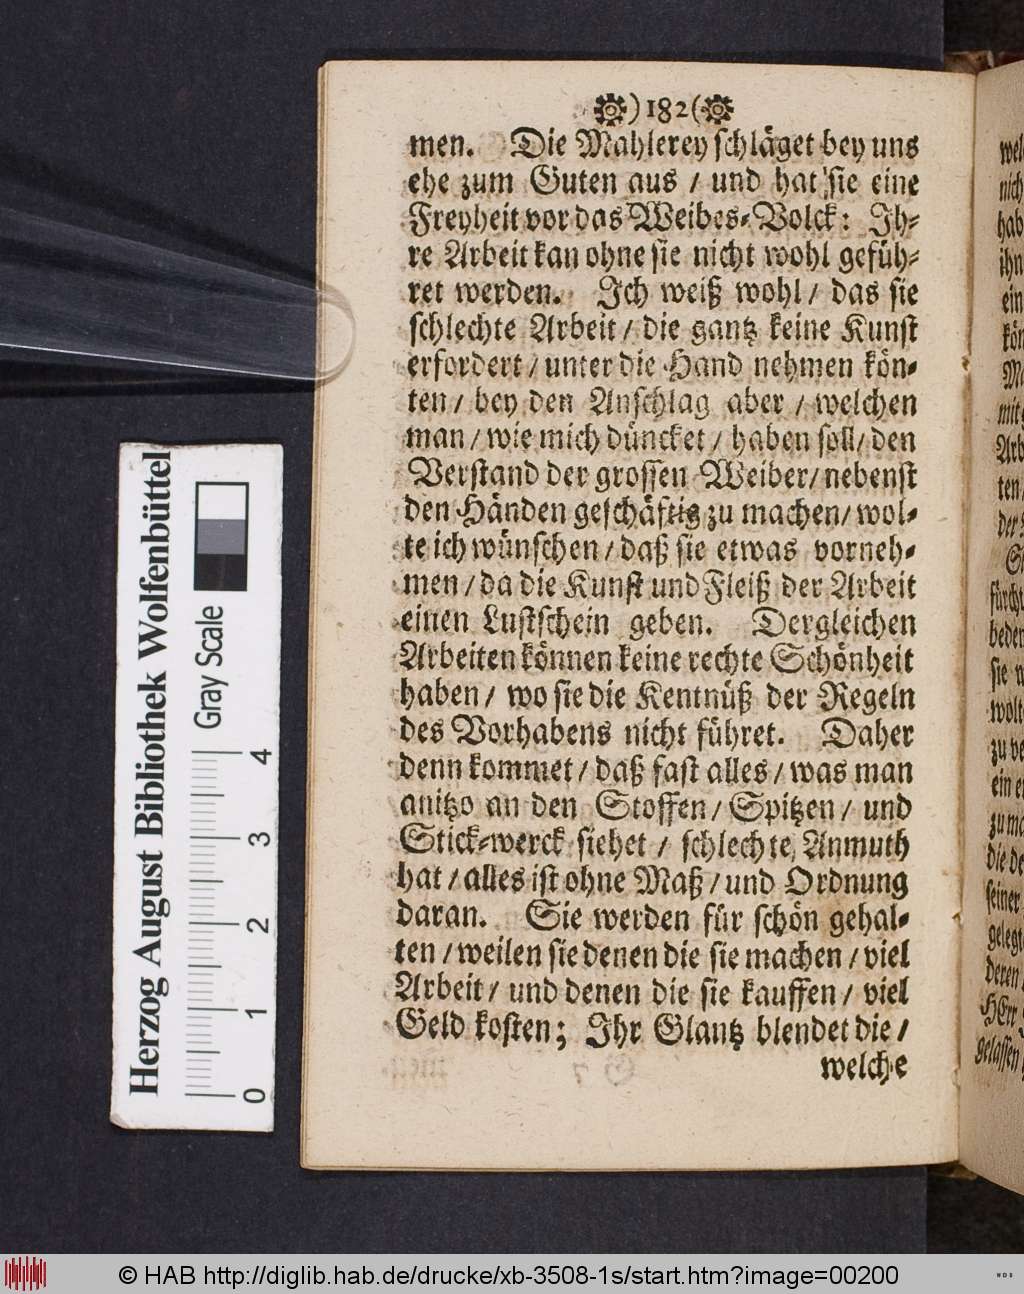 )182(
men. Die Mahlerey schläget bey uns
ehe zum Guten aus / und hat sie eine
Freyheit vor das Weibes-Volck: Ih-
re Arbeit kan ohne sie nicht wohl gefüh-
ret werden. Ich weiß wohl / das sie
schlechte Arbeit / die gantz keine Kunst
erfordert / unter die Hand nehmen kön-
ten / bey den Anschlag aber / welchen
man / wie mich düncket / haben soll / den
Verstand der grossen Weiber / nebenst
den Händen geschäftig zu machen / wol-
te ich wünschen / daß sie etwas vorneh-
men / da die Kunst und Fleiß der Arbeit
einen Lustschein geben. Dergleichen
Arbeiten können keine rechte Schönheit
haben / wo sie die Kentnüß der Regeln
des Vorhabens nicht führet. Daher
denn kommet / daß fast alles / was man
anitzo an den Stoffen / Spitzen / und
Stick-werck siehet / schlechte Anmuth
hat / alles ist ohne Maß / und Ordnung
daran. Sie werden für schön gehal-
ten / weilen sie denen die sie machen / viel
Arbeit / und denen die sie kauffen / viel
Geld kosten; Ihr Glantz blendet die /
welche
Herzog August Bibliothek Wolfenbüttel
Gray Scale
0 1 2 3 4
© HAB http://diglib.hab.de/drucke/xb-3508-1s/start.htm?image=00200